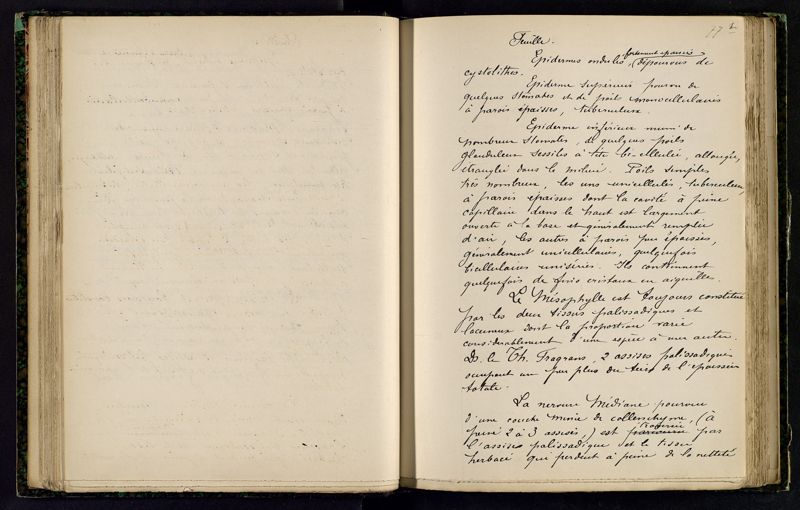 17
Feuille.
fortement épaissis
Epidermes ondulés, (dépourvus de
cystolithes.
Epiderme supérieur pourvu de
quelques stomates et de poils monocellulaires
à parois épaisses, tuberculeux.
Epiderme inférieur muni de
nombreux stomates, de quelques poils
glanduleux sessiles à tête bi-cellulée, allongée,
étranglée dans le milieu. Poils simples
très nombreux, les uns unicellulés, tuberculeux
à parois épaisses dont la cavité à peine
capillaire dans le haut est largement
ouverte à la base et généralement remplie
d'air, les autres à parois peu épaisses,
généralement unicellulaires, quelquefois
bicellulaires unisériés. Ils contiennent
quelquefois de fins cristaux en aiguilles.
Le Mésophylle est toujours constitué
par les deux tissus palissadiques et
lacuneux dont la proportion varie
considérablement d'une espèce à une autre.
Ds. le Th. Fragrans, 2 assises palissadiques
occupent un peu plus du tiers de l'épaisseur
totale.
La nervure Médiane pourvue
d'une couche mince de collenchyme, (à
peine 2 à 3 assises,) est par
l'assise palissadique et le tissu
herbacé qui perdent à peine de la netteté